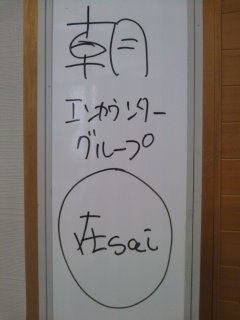 朝
エンカウンター
グループ
在sai